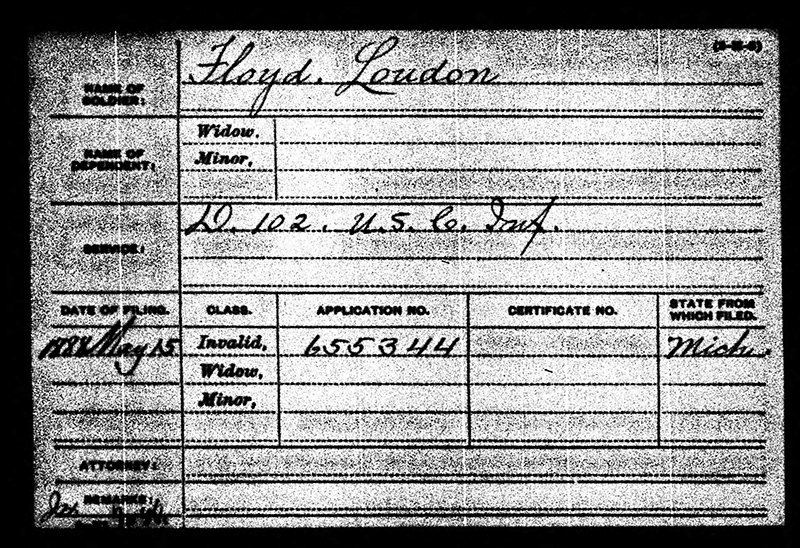 (3-M-6)
NAME OF SOLDIER:
Floyd. Loudon
NAME OF DEPENDENT:
Widow,
Minor,
SERVICE:
D. 102. U.S. C. Inf.
DATE OF FILING.
CLASS.
APPLICATION NO.
CERTIFICATE NO.
STATE FROM WHICH FILED.
May 15
Invalid,
655344
Mich.
Widow,
Minor,
ATTORNEY:
REMARKS: